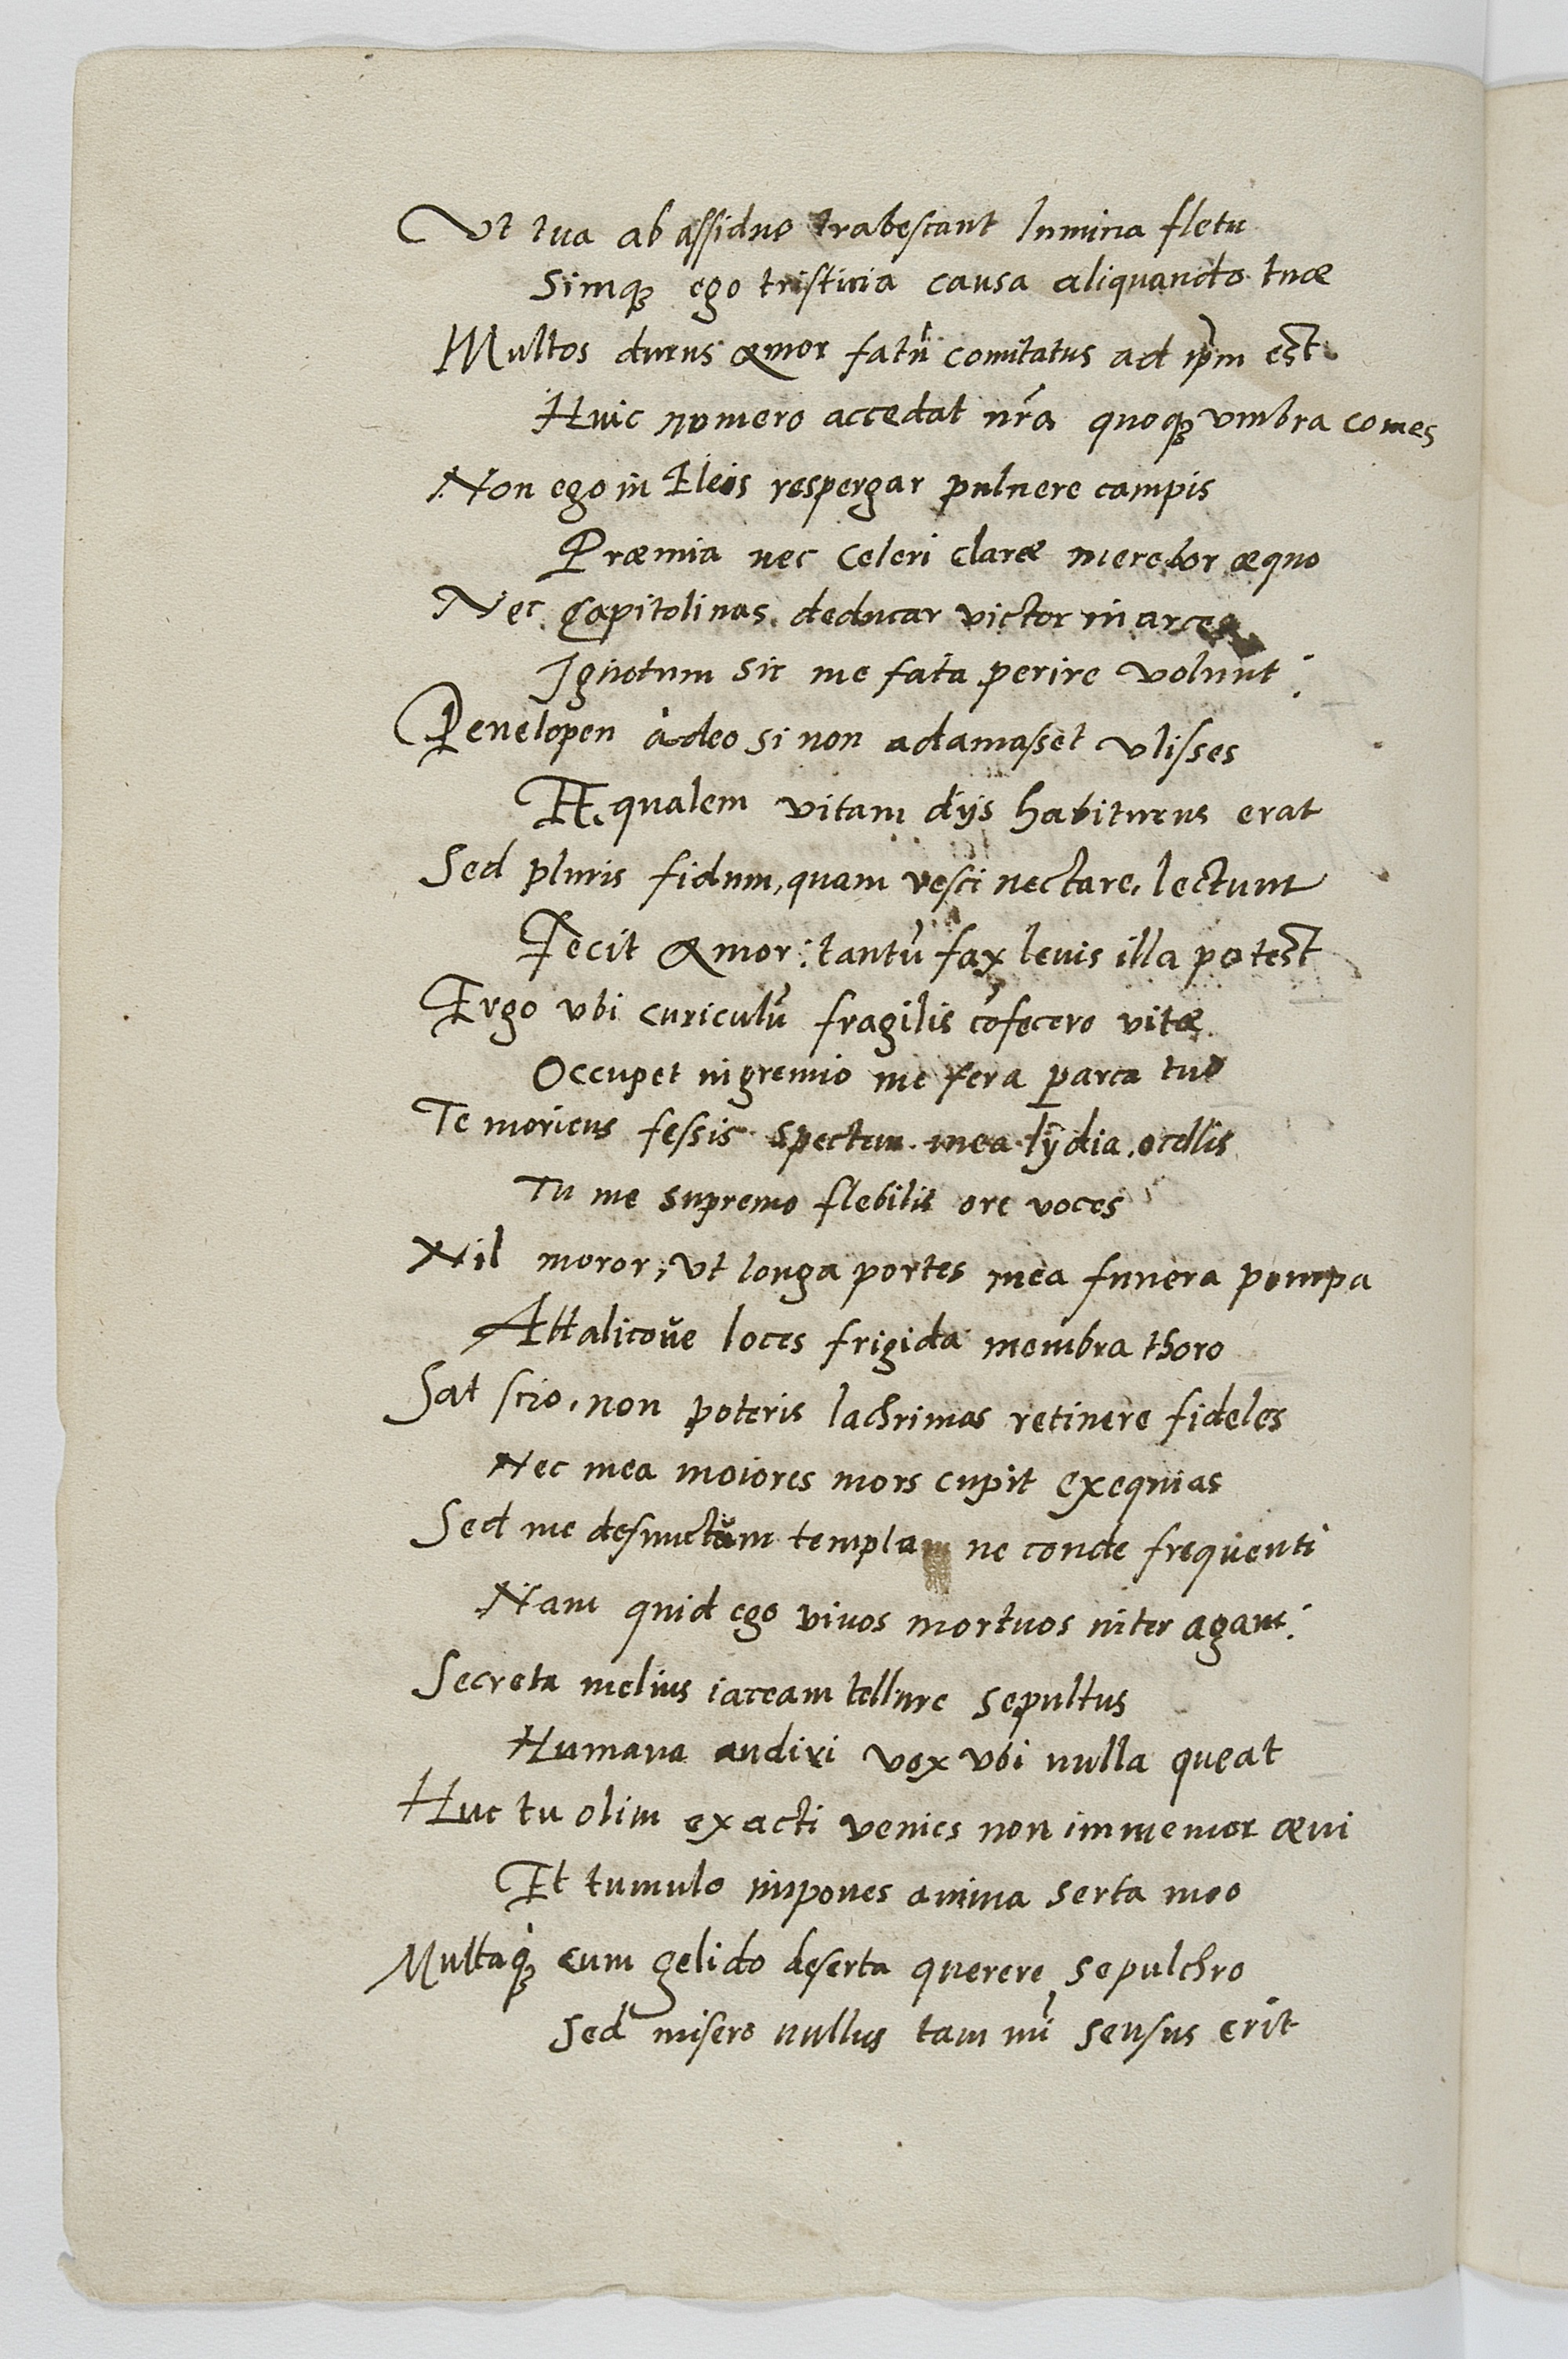 Vt tua ab assiduo trabescant lumina fletu
Simq; ego tristitia causa aliquando tuæ
Multos durus Amor fatū comitatus ad ip̄m est
Huic numero accedat nr̄a quoq; vmbra comes
Non ego in Eleis respergar puluere campis
Præmia nec celeri claræ merebor æquo
Nec Capitolinas deducar victor in arces
Ignotum sic me fata perire volunt:
Penelopen adeo si non adamasset vlisses
Æqualem vitam dijs habiturus erat
Sed pluris fidum, quam vesci nectare, lectum
Fecit Amor: tantū fax leuis illa potest
Ergo vbi curiculū fragilis cōfecero vitæ
Occupet in gremio me fera parca tuo
Te moriens fessis spectem mea lydia ocellis
Tu me supremo flebilis ore voces
Nil moror, vt longa portes mea funera pompa
Attalicoue loces frigida membra thoro
Sat scio, non poteris lachrimas retinere fideles
Nec mea maiores mors cupit exequias
Sed me defunctum templa ne conde frequenti
Nam quid ego viuos mortuos inter agam:
Secreta melius iaceam tellure sepultus
Humana audiri vox vbi nulla queat
Huc tu olim exacti venies non immemor æui
Et tumulo impones anima serta meo
Multaq; cum gelido deserta querere sepulchro
Sed misero nullus tam mī sensus erit